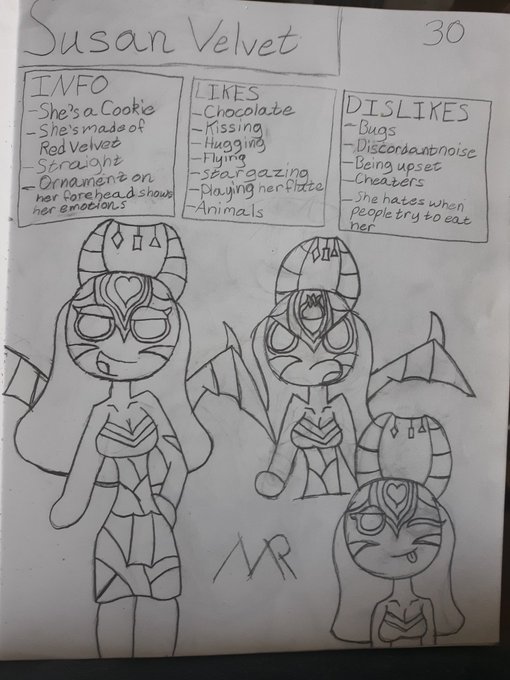 Susan Velvet
30
INFO
- She's a Cookie
- She's made of
Red Velvet
- Straight
- Ornament on
her forehead shows
her emotions
LIKES
- Chocolate
- Kissing
- Hugging
- Flying
- stargazing
- Playing her flute
- Animals
DISLIKES
- Bugs
- Discordant noise
- Being upset
- Cheaters
- She hates when
people try to eat
her
MR